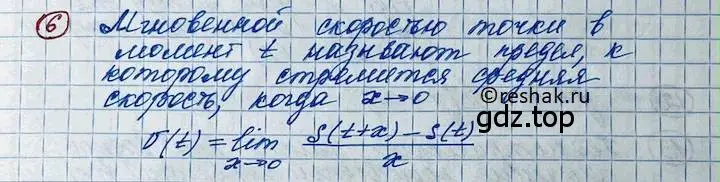 6 Мгновенной скоростью точки в
момент t называют предел, к
которому стремится средняя
скорость, когда x→0
©reshak.ru
gdz.top
υ(t) = lim x→0 (S(t+x) − S(t))/x